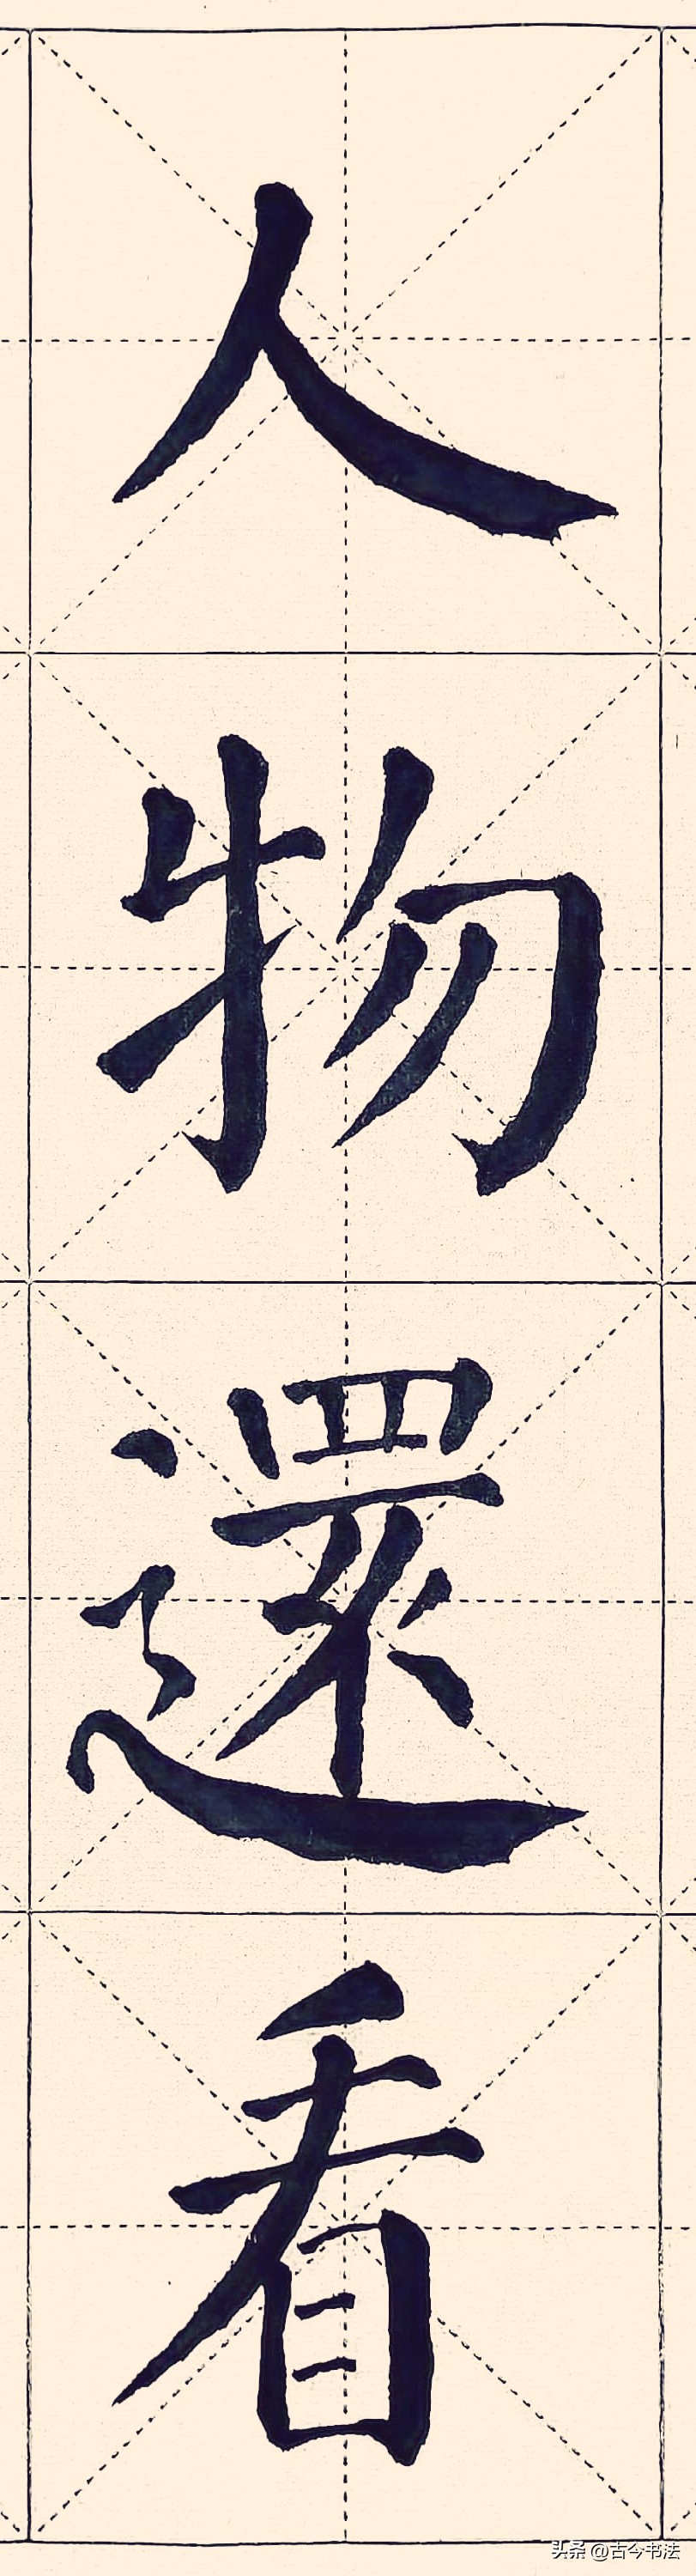 人
物
還
看
头条 @古今书法